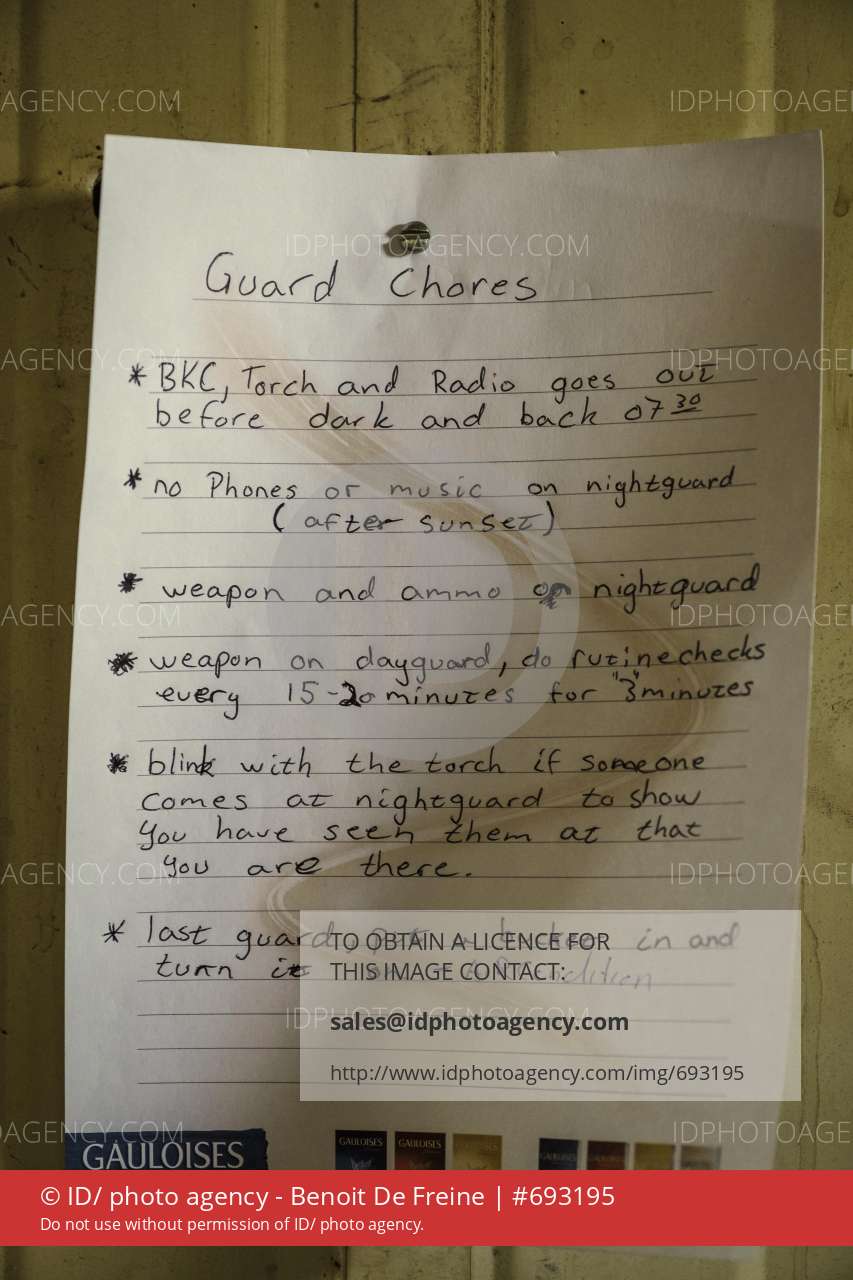 IDPHOTOAGENCY.COM
Guard Chores
* BKC, Torch and Radio goes out
before dark and back 07 30
* no Phones or music on nightguard
( after sunset )
* weapon and ammo on nightguard
* weapon on dayguard, do rutinechecks
every 15-20 minutes for "3" minutes
* blink with the torch if someone
comes at nightguard to show
you have seen them at that
you are there.
* last guard, in and
turn it
TO OBTAIN A LICENCE FOR
THIS IMAGE CONTACT:
sales@idphotoagency.com
http://www.idphotoagency.com/img/693195
GAULOISES
GAULOISES GAULOISES
© ID/ photo agency - Benoit De Freine | #693195
Do not use without permission of ID/ photo agency.